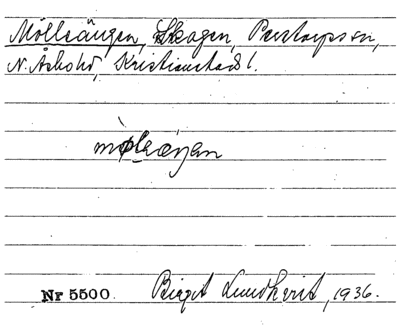 Mölleängen, Skogen, Perstorps sn,
N. Åsbohd, Kristianstads l.
mølɛæŋən
Nr 5500. Birgit Lundkvist, 1936.